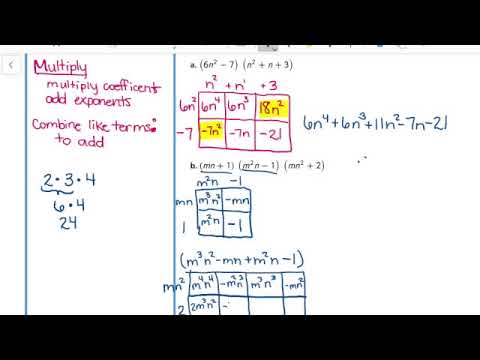 Multiply
multiply coefficent
add exponents
Combine like terms
to add
2 • 3 • 4
6 • 4
24
a. (6n² − 7) (n² + n + 3)
n² + n¹ + 3
6n² 6n⁴ 6n³ 18n²
−7 −7n² −7n −21
6n⁴ + 6n³ + 11n² − 7n − 21
b. (mn + 1) (m²n − 1) (mn² + 2)
m²n −1
mn m³n² −mn
1 m²n −1
(m³n² − mn + m²n − 1)
mn² m⁴n⁴ −m²n³ m³n³ −mn²
2 2m³n²